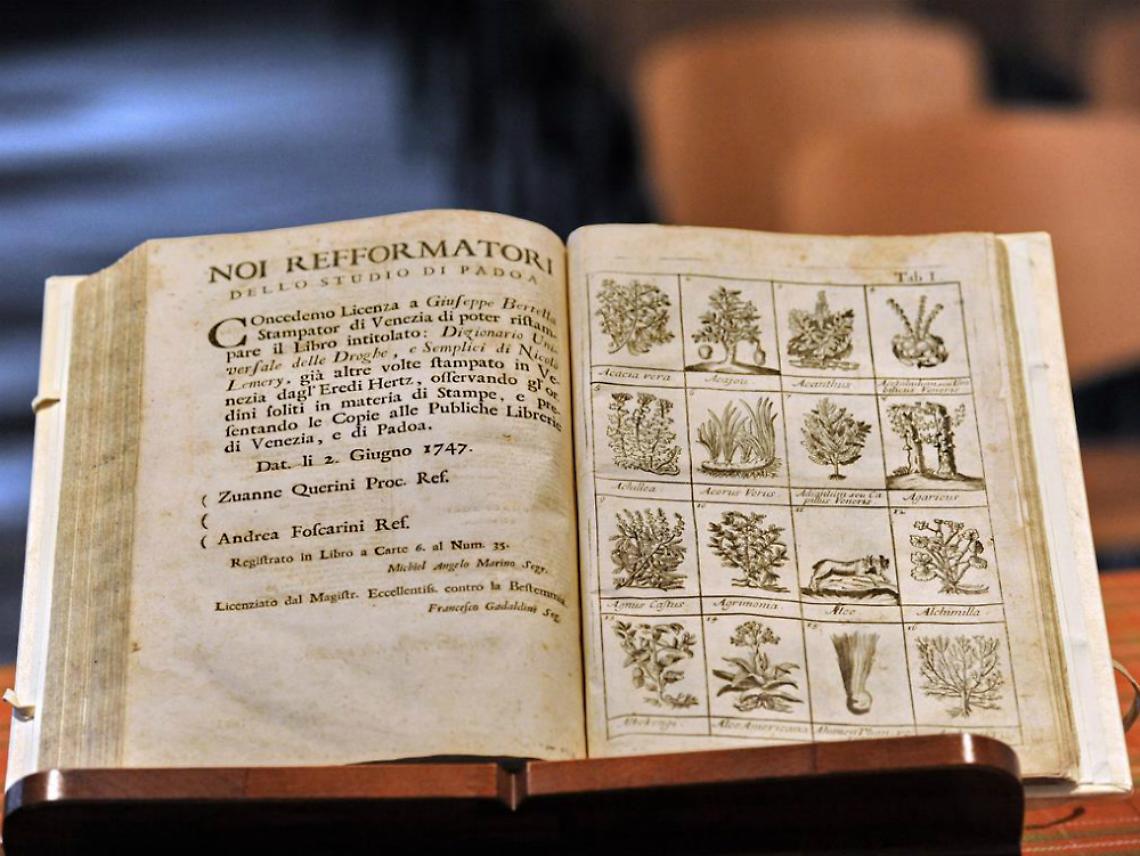 NOI REFFORMATORI
DELLO STUDIO DI PADOA
COncedemo Licenza a Giuseppe Bertella
Stampator di Venezia di poter ristam-
pare il Libro intitolato: Dizionario Uni-
versale delle Droghe, e Semplici di Nicolò
Lemery, già altre volte stampato in Ve-
nezia dagl'Eredi Hertz, osservando gl'or
dini soliti in materia di Stampe, e pre-
sentando le Copie alle Publiche Librerie
di Venezia, e di Padoa.
Dat. li 2. Giugno 1747.
( Zuanne Querini Proc. Ref.
(
( Andrea Foscarini Ref.
Registrato in Libro a Carte 6. al Num. 35.
Michiel Angelo Marino Segr.
Licenziato dal Magistr. Eccellentiss. contro la Bestemmia
Francesco Gadaldini Seg.
Tab I.
Acacia vera
Acajou.
Acanthus
5
Achillea
Acorus Verus
7
Adianthum seu Ca
pillus Veneris
Agaricus
9
Agnus Castus
10
Agrimonia
Alce
12
Alchimilla
13
14
Aloe Americana
15
16